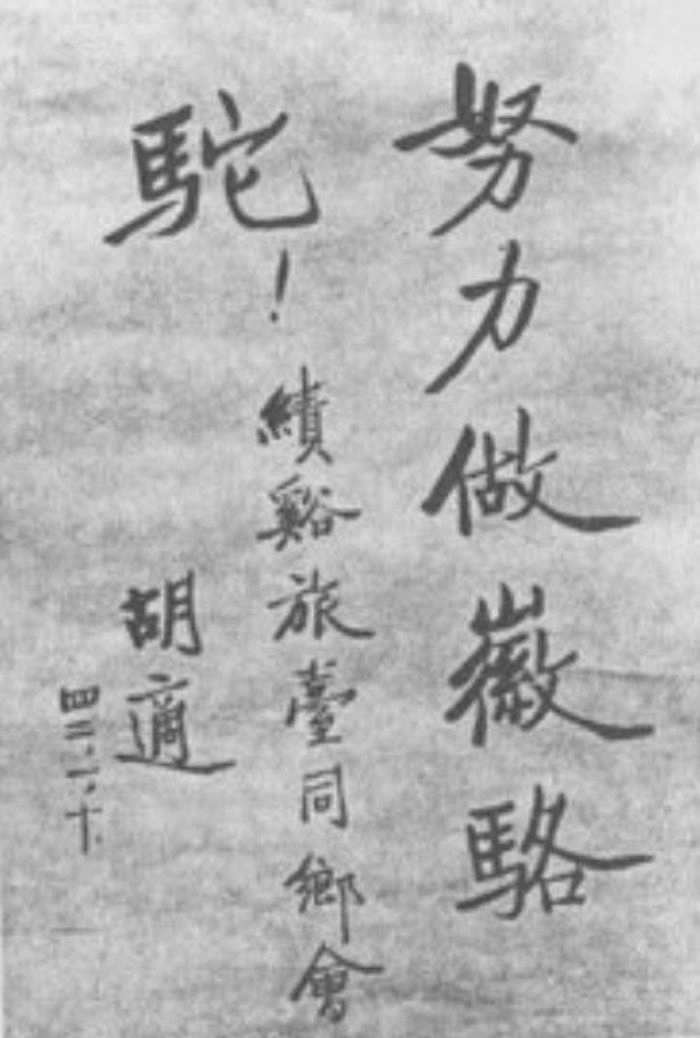 努力做徽駱
駝！
績谿旅臺同鄉會
胡適
四二、一、十、